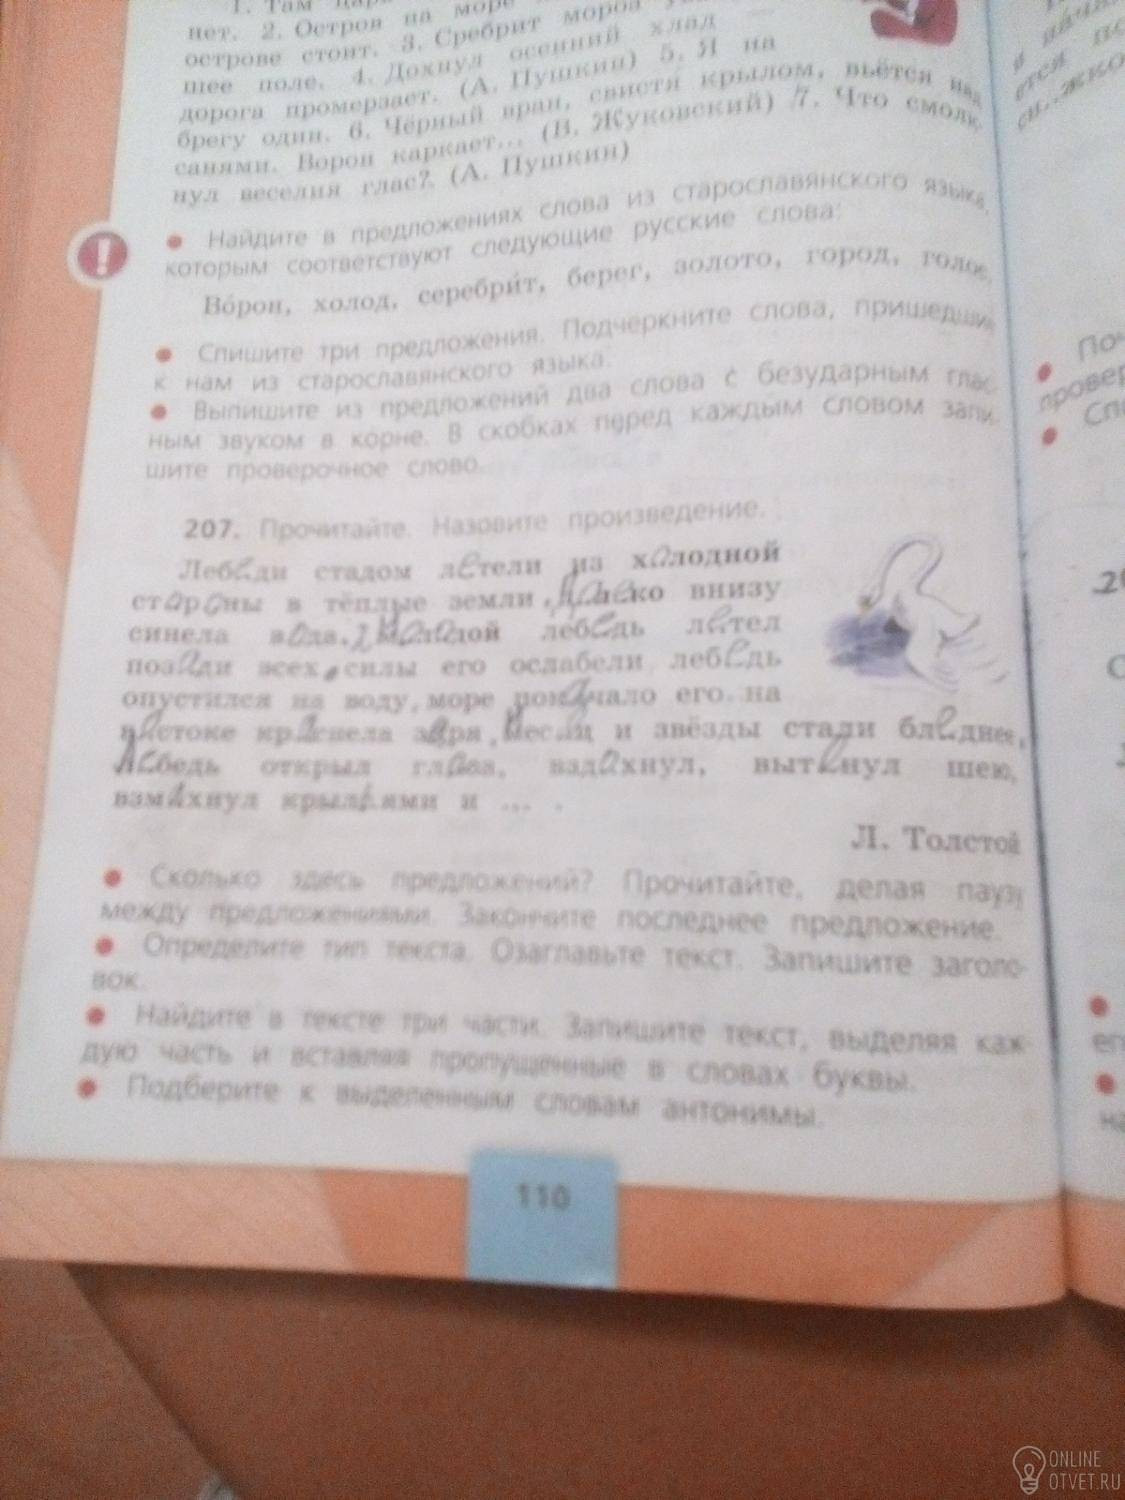 1. Там
нет. 2. Остров на море
острове стоит. 3. Сребрит мороз
шее поле. 4. Дохнул осенний хлад —
дорога промерзает. (А. Пушкин) 5. Я на
брегу один. 6. Чёрный вран, свистя крылом, вьётся над
санями. Ворон каркает... (В. Жуковский) 7. Что смолк-
нул веселия глас? (А. Пушкин)
! • Найдите в предложениях слова из старославянского языка,
которым соответствуют следующие русские слова:
Во́рон, холод, серебри́т, берег, золото, город, голос.
• Спишите три предложения. Подчеркните слова, пришедшие
к нам из старославянского языка.
• Выпишите из предложений два слова с безударным глас-
ным звуком в корне. В скобках перед каждым словом запи-
шите проверочное слово.
207. Прочитайте. Назовите произведение.
Лебеди стадом летели из холодной
стороны в тёплые земли. Далеко внизу
синела вода. Молодой лебедь летел
позади всех. силы его ослабели лебедь
опустился на воду, море покачало его. на
востоке краснела заря, месяц и звёзды стали бледнее,
Лебедь открыл глаза, вздохнул, вытянул шею,
взмахнул крыльями и ... .
Л. Толстой
• Сколько здесь предложений? Прочитайте, делая паузу
между предложениями. Закончите последнее предложение.
• Определите тип текста. Озаглавьте текст. Запишите заголо-
вок.
• Найдите в тексте три части. Запишите текст, выделяя каж-
дую часть и вставляя пропущенные в словах буквы.
• Подберите к выделенным словам антонимы.
110
ONLINE
OTVET.RU